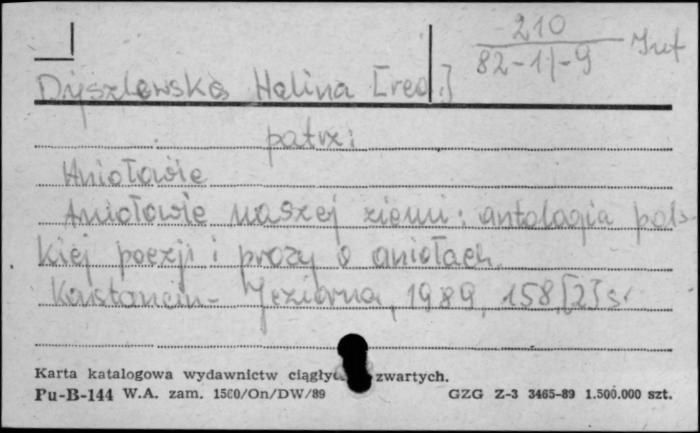 210
82-1/-9 Inf
Dyszlewska Halina [red.]
patrz:
Aniołowie
Aniołowie naszej ziemi: antologia pols-
kiej poezji i prozy o aniołach.
Konstancin-Jeziorna, 1989, 158,[2]s.
Karta katalogowa wydawnictw zwartych.
Pu-B-144 W.A. zam. 1500/On/DW/89 GZG Z-3 3465-89 1.500.000 szt.